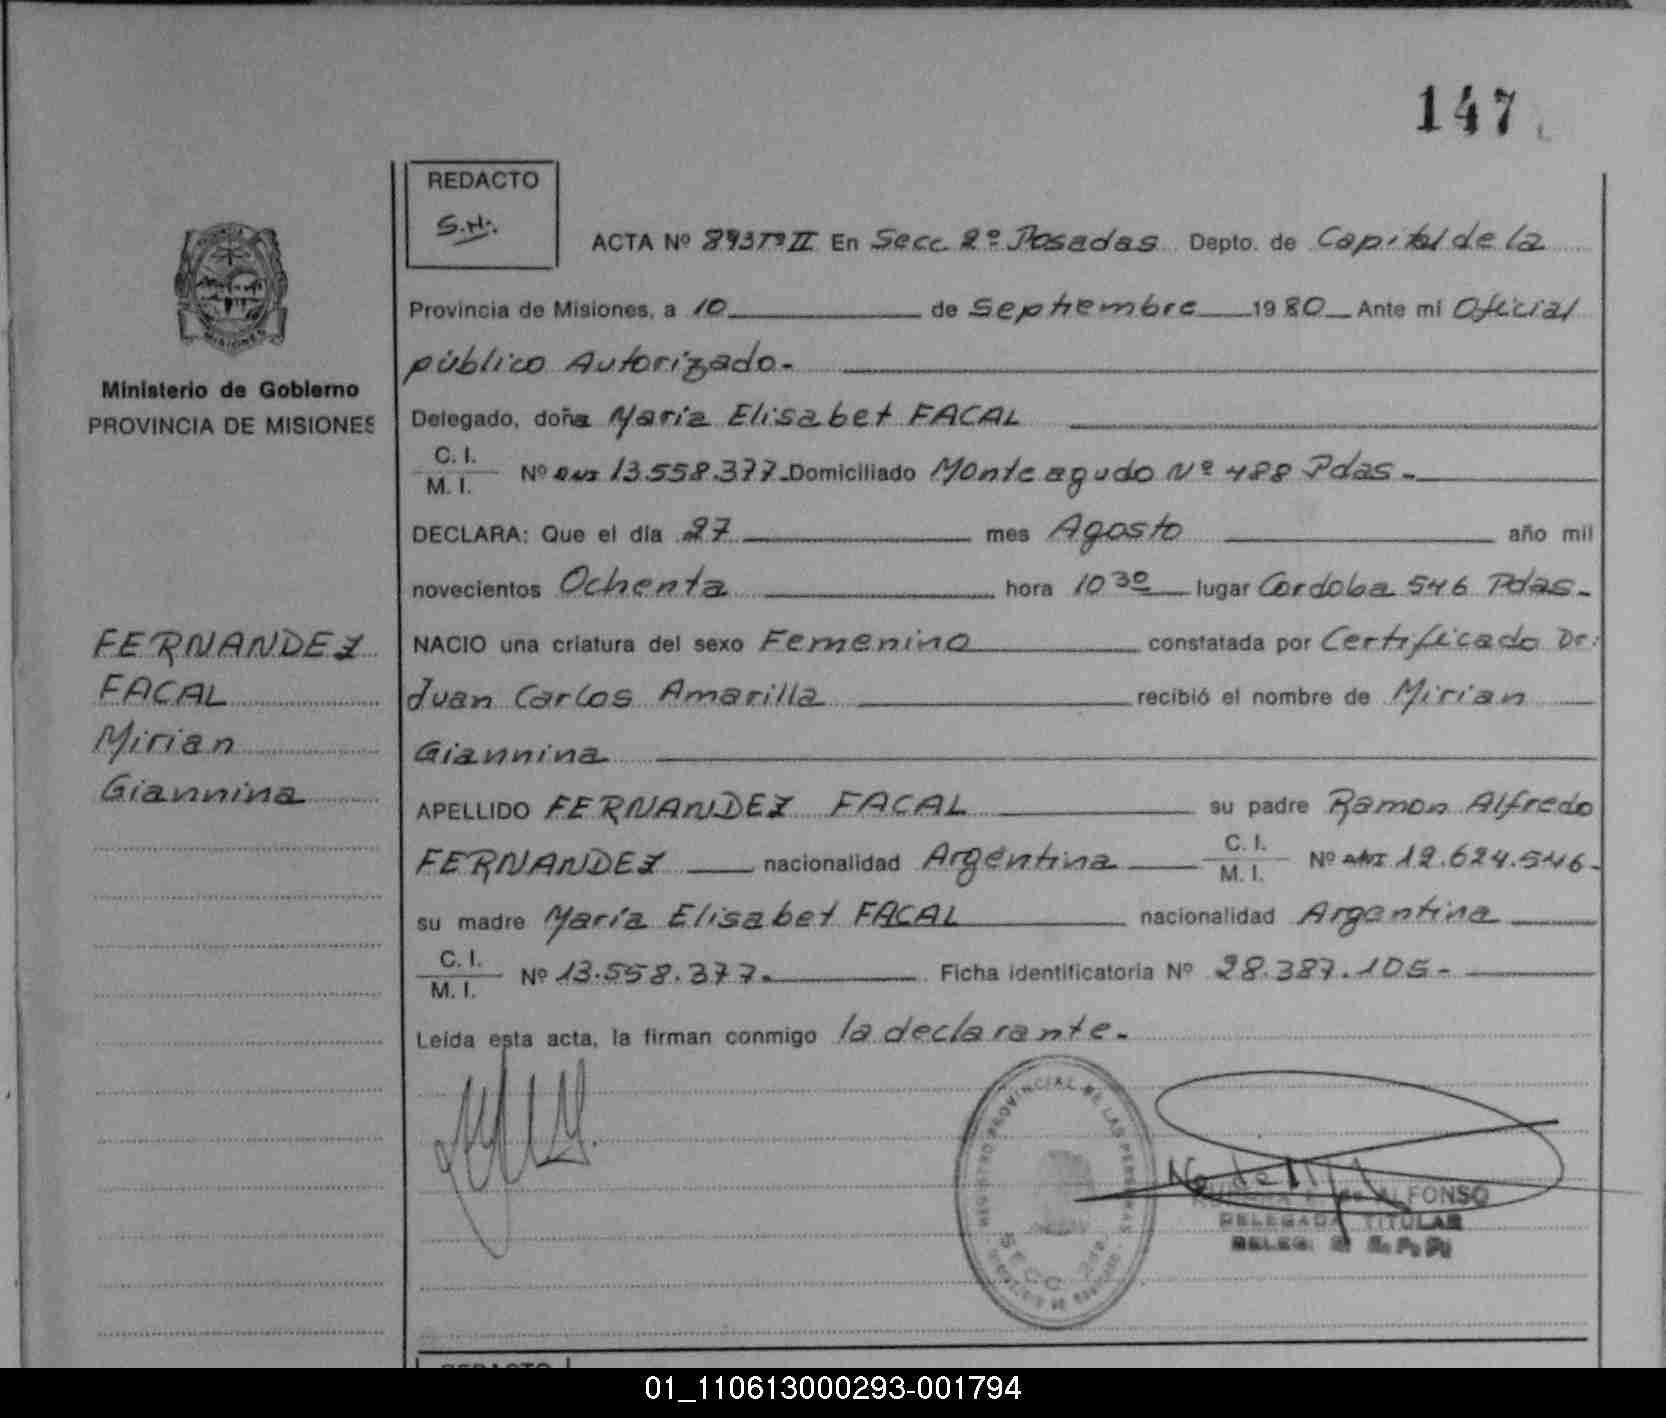 147
REDACTO
S.N.
ACTA Nº 893Tº II En Secc. 2º Posadas Depto. de Capital de la
Provincia de Misiones, a 10 de Septiembre 1980 Ante mi Oficial
público Autorizado.-
Ministerio de Gobierno
PROVINCIA DE MISIONES
Delegado, doña María Elisabet FACAL
C. I.
M. I.
Nº DNI 13.558.377.- Domiciliado Monteagudo Nº 488 Pdas.-
DECLARA: Que el día 27 mes Agosto año mil
novecientos Ochenta hora 10 30 lugar Cordoba 546 Pdas.-
FERNANDEZ
FACAL
Mirian
Giannina
NACIO una criatura del sexo Femenino constatada por Certificado Dr:
Juan Carlos Amarilla recibió el nombre de Mirian
Giannina
APELLIDO FERNANDEZ FACAL su padre Ramon Alfredo
FERNANDEZ nacionalidad Argentina C. I. M. I. Nº DNI 12.624.546.-
su madre María Elisabet FACAL nacionalidad Argentina
C. I.
M. I.
Nº 13.558.377.- Ficha identificatoria Nº 28.387.105.-
Leída esta acta, la firman conmigo la declarante.-
REGISTRO PROVINCIAL DE LAS PERSONAS
SECC. 2da
ALFONSO
DELEGADA TITULAR
REDACTO
01_110613000293-001794